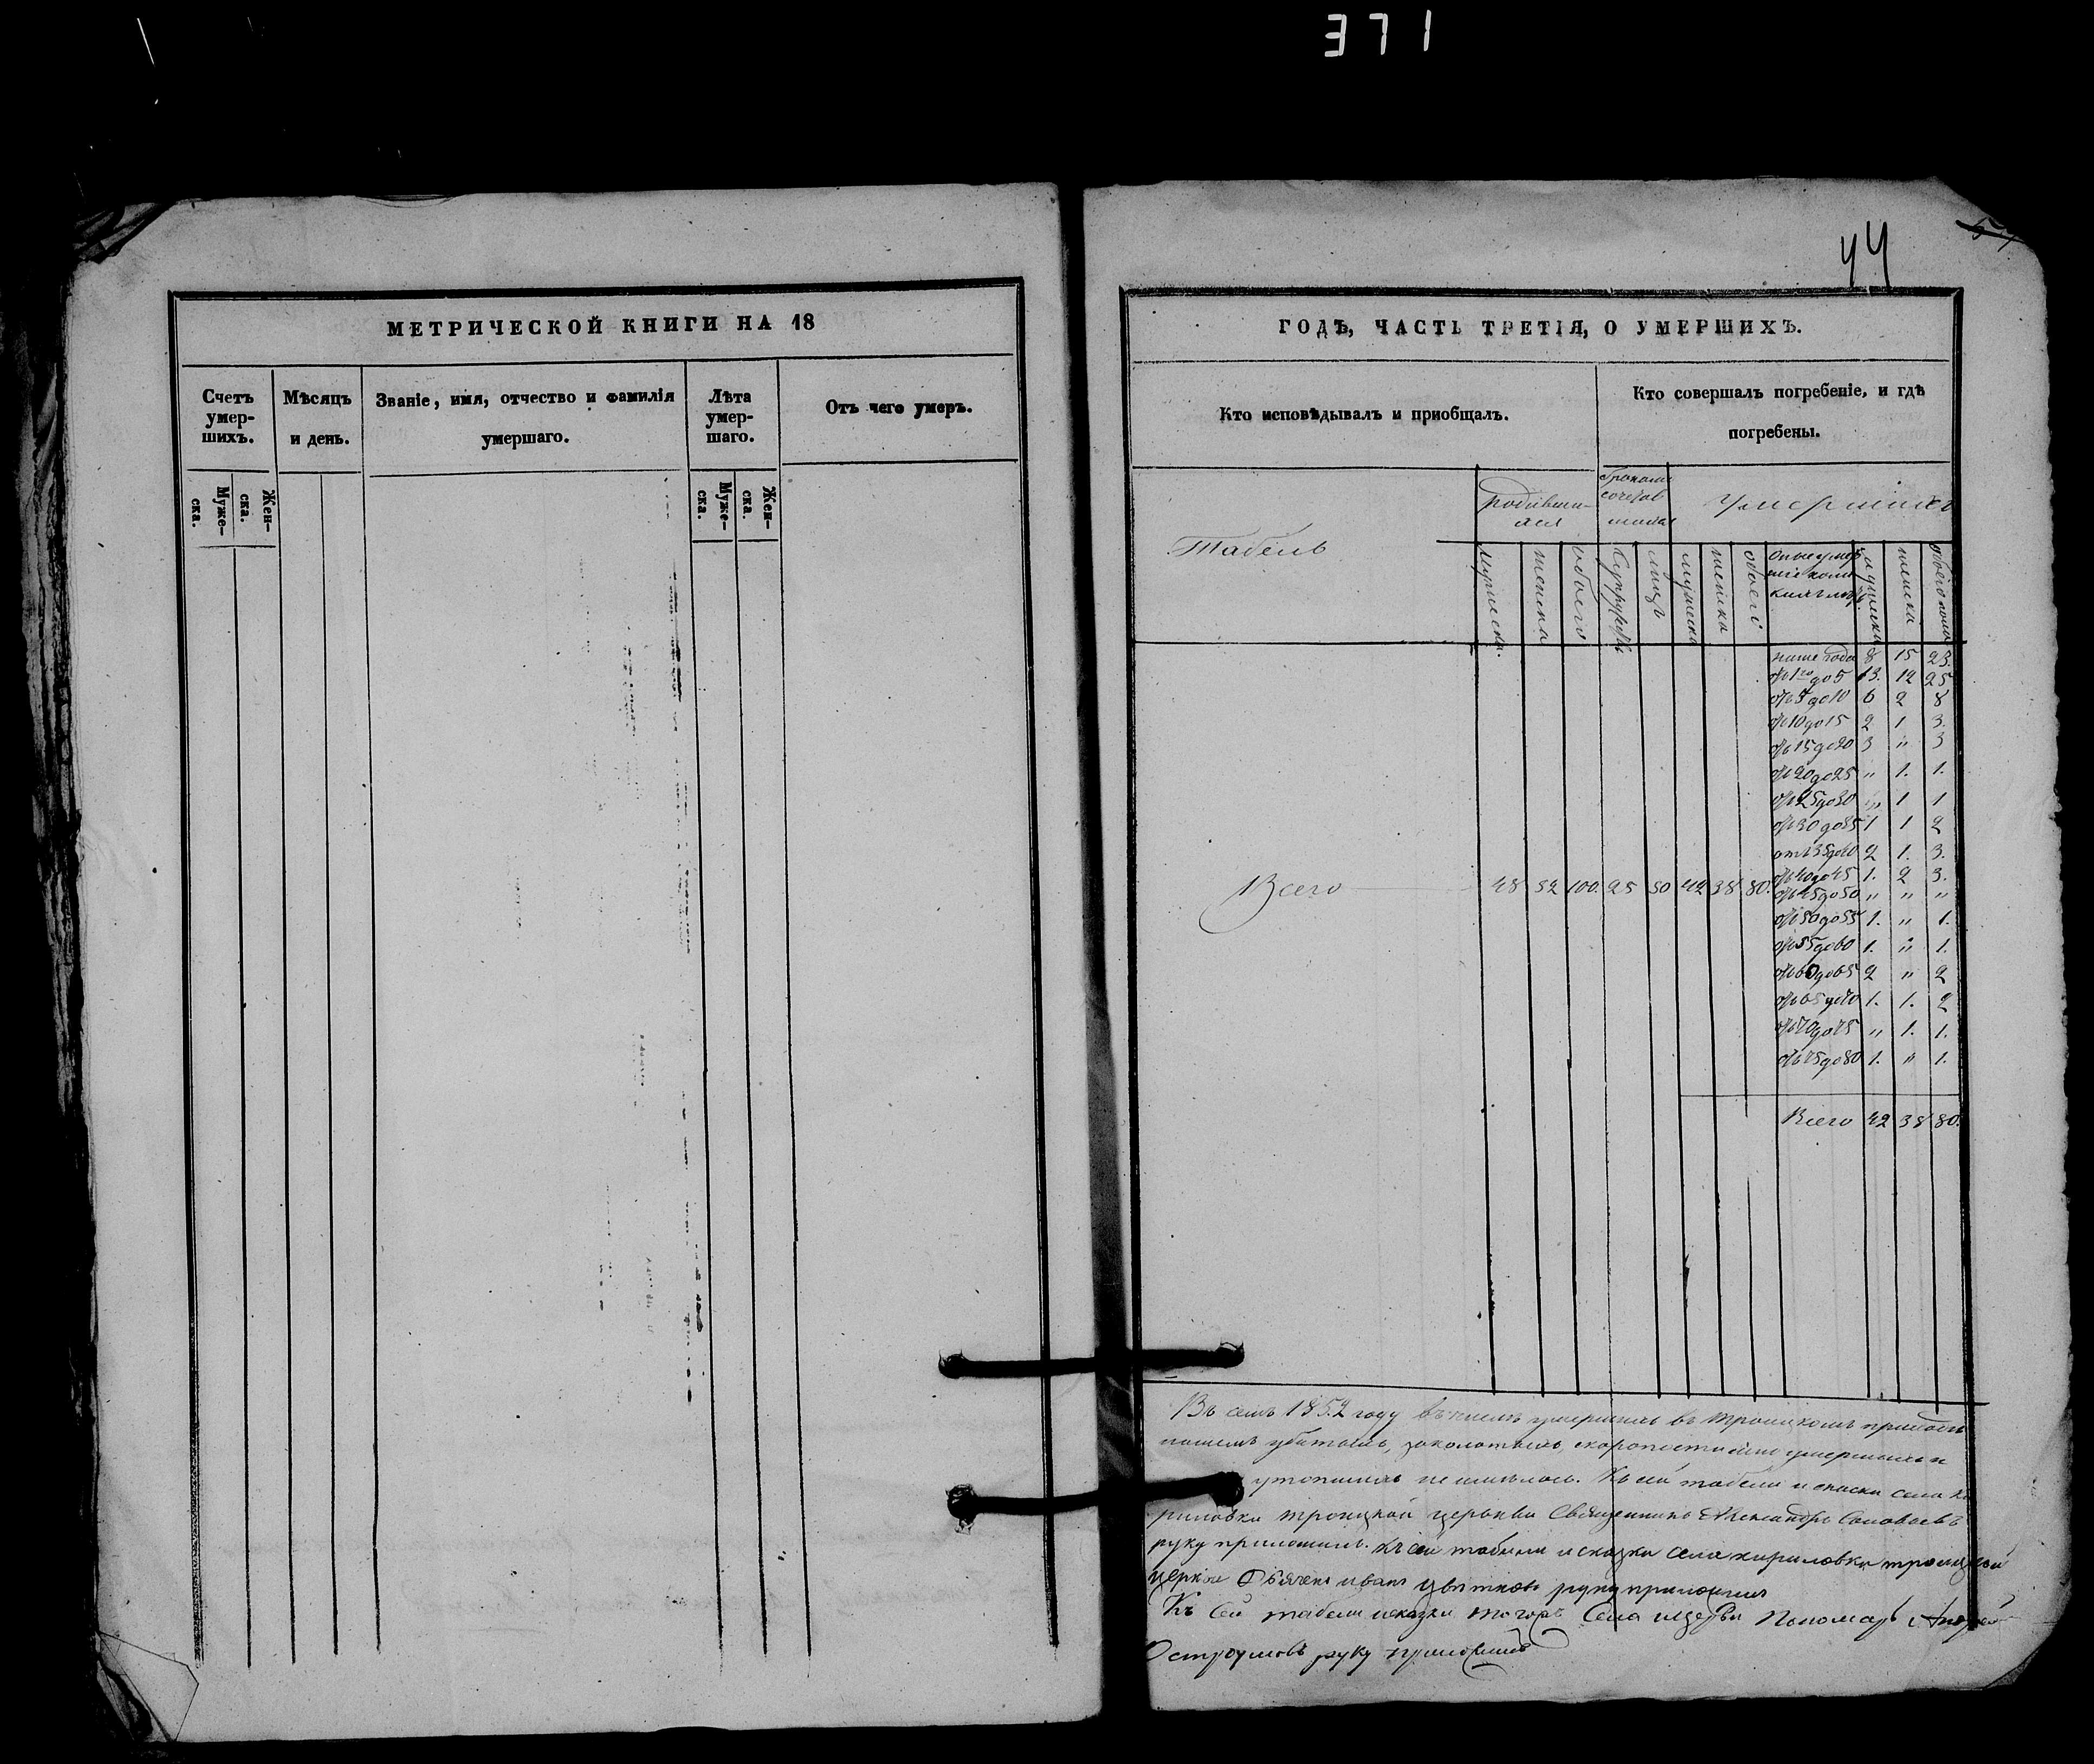 371
44
МЕТРИЧЕСКОЙ КНИГИ НА 18
Счетъ умер-шихъ.
Муже-ска.
Жен-ска.
Мѣсяцъ и день.
Званіе, имя, отчество и фамилія умершаго.
Лѣта умер-шаго.
Муже-ска.
Жен-ска.
Отъ чего умеръ.
ГОДѢ, ЧАСТЬ ТРЕТІЯ, О УМЕРШИХЪ.
Кто исповѣдывалъ и приобщалъ.
Кто совершалъ погребеніе, и гдѣ погребены.
Табель
родивши-
мся
умершихъ
мужеска
женска
обоего
супруговъ
лицъ
мужеска
женска
обоего
мужеска
женска
обоего пола
ниже года 8 15 23.
отъ 1го до 5 13. 12 25
отъ 5 до 10 6 2 8
отъ 10 до 15 2 1 3.
отъ 15 до 20 3 " 3
отъ 20 до 25 " 1. 1.
отъ 25 до 30 " 1 1
отъ 30 до 35 1 1 2
отъ 35 до 40 2 1. 3.
отъ 40 до 45 1. 2 3.
Всего 48 52 100. 25 50 42 38 80.
отъ 45 до 50 " " "
отъ 50 до 55 1. " 1.
отъ 55 до 60 1. " 1.
отъ 60 до 65 2 " 2
отъ 65 до 70 1. 1. 2
отъ 70 до 75 " 1. 1.
отъ 75 до 80 1. " 1.
Всего 42 38 80.
Въ семъ 1852 году въ числѣ умершихъ въ Троицкомъ приходѣ
нашемъ убитыхъ, заколотыхъ, скоропостижно умершихъ и
утопшихъ не имѣлось. Къ сей табели и сказки села Ки
риловки Троицкой церкви Священникъ Александръ Соловьевъ
руку приложилъ. Къ сей табели и сказки села Кириловки Троицкой
церкви Дьячекъ Иванъ Цвѣтковъ руку приложилъ
Къ сей табели и сказки тогожъ села и церкви Пономарь Андрей
Остроумовъ руку приложилъ